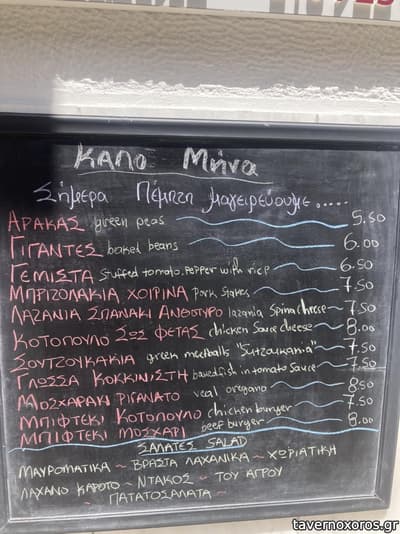 ΚΑΛΟ Μήνα
Σήμερα Πέμπτη μαγειρεύουμε.....
ΑΡΑΚΑΣ green peas 5.50
ΓΙΓΑΝΤΕΣ baked beans 6.00
ΓΕΜΙΣΤΑ stuffed tomato.pepper with rice 6.50
ΜΠΡΙΖΟΛΑΚΙΑ ΧΟΙΡΙΝΑ Pork stakes 7.50
ΛΑΖΑΝΙΑ ΣΠΑΝΑΚΙ ΑΝΘΟΤΥΡΟ lazania Spina cheese 7.50
ΚΟΤΟΠΟΥΛΟ ΣΩΣ ΦΕΤΑΣ chicken Sauce cheese 8.00
ΣΟΥΤΖΟΥΚΑΚΙΑ green meatballs "Sutzoukania" 7.50
ΓΛΩΣΣΑ ΚΟΚΚΙΝΙΣΤΗ fish in tomato Sauce 7.50
ΜΟΣΧΑΡΑΚΙ ΡΙΓΑΝΑΤΟ veal oregano 8.50
ΜΠΙΦΤΕΚΙ ΚΟΤΟΠΟΥΛΟ chicken burger 7.50
ΜΠΙΦΤΕΚΙ ΜΟΣΧΑΡΙ beef burger 8.00
ΣΑΛΑΤΕΣ SALAD
ΜΑΥΡΟΜΑΤΙΚΑ ~ ΒΡΑΣΤΑ ΛΑΧΑΝΙΚΑ ~ ΧΩΡΙΑΤΙΚΗ
ΛΑΧΑΝΟ ΚΑΡΟΤΟ ~ ΝΤΑΚΟΣ ~ ΤΟΥ ΑΓΡΟΥ
~ ΠΑΤΑΤΟΣΑΛΑΤΑ ~
tavernoxoros.gr